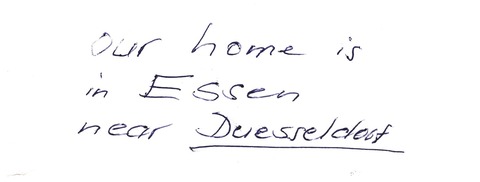 Our home is
in Essen
near Duesseldorf